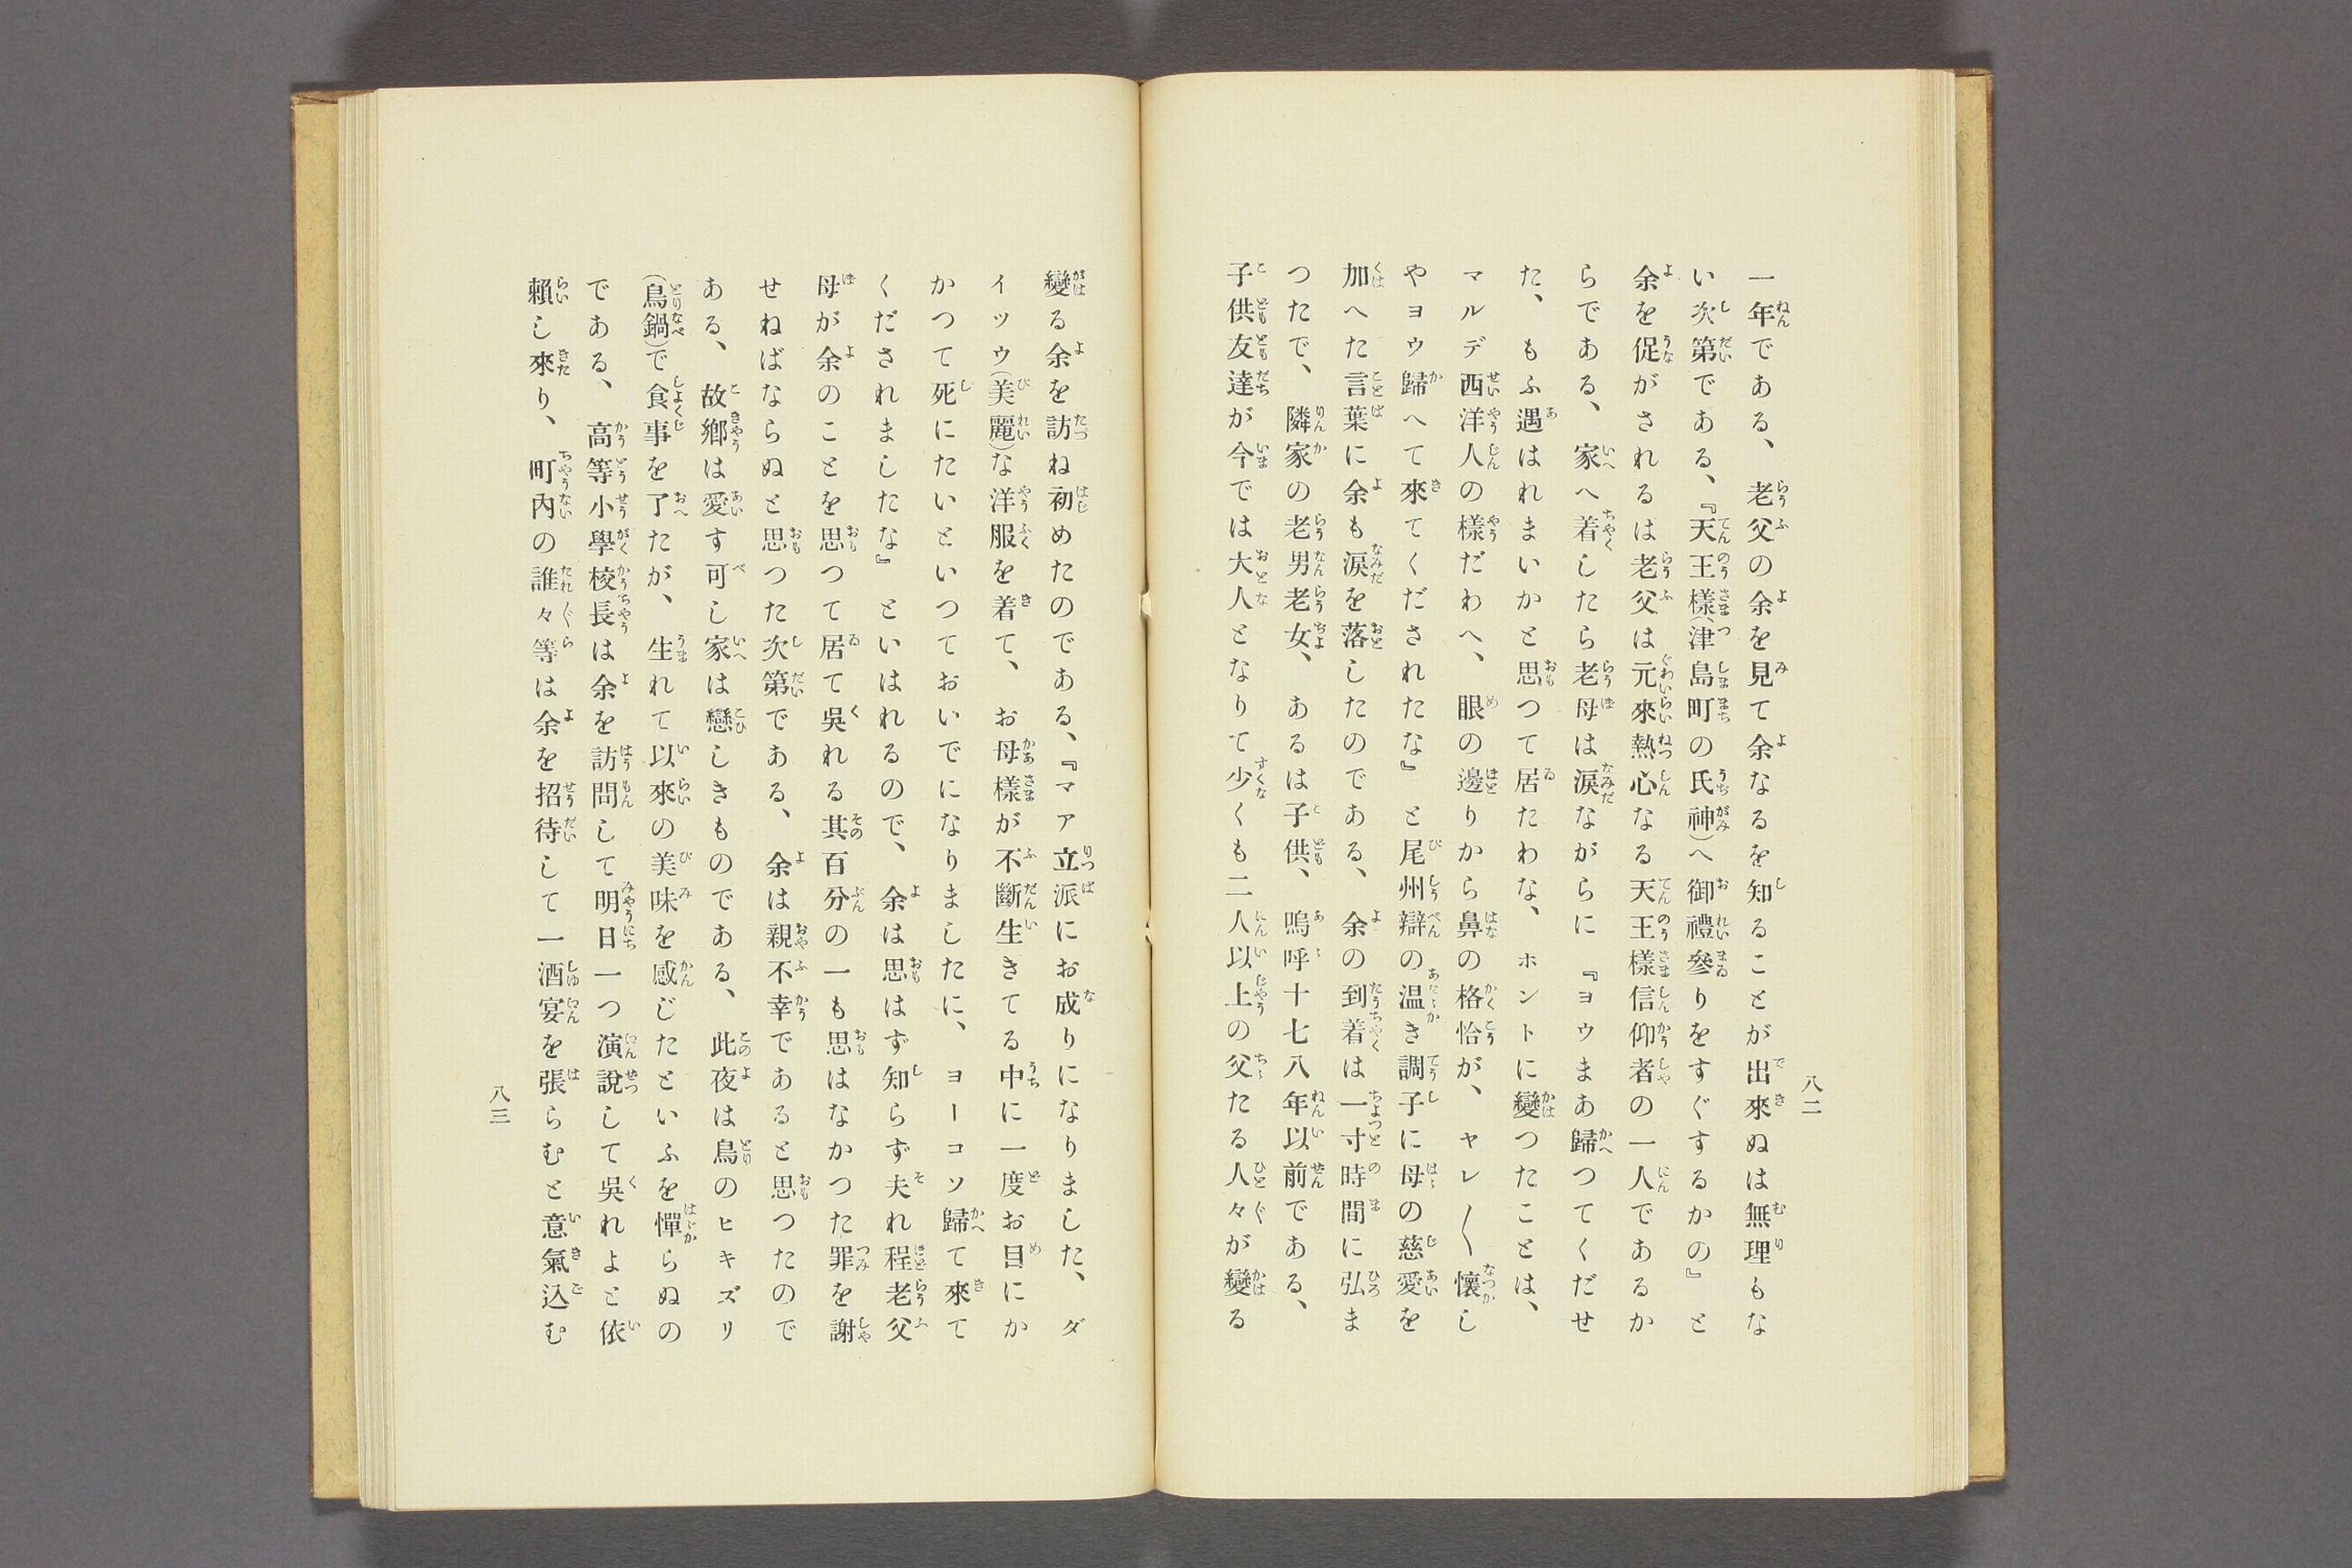 八二
一年である、老父の余を見て余なるを知ることが出來ぬは無理もな
い次第である、『天王樣(津島町の氏神)へ御禮參りをすぐするかの』と
余を促がされるは老父は元來熱心なる天王樣信仰者の一人であるか
らである、家へ着したら老母は涙ながらに『ヨウまあ歸つてくだせ
た、もふ遇はれまいかと思つて居たわな、ホントに變つたことは、
マルデ西洋人の樣だわへ、眼の邊りから鼻の格恰が、ヤレ〳〵懷し
やヨウ歸へて來てくだされたな』と尾州辯の温き調子に母の慈愛を
加へた言葉に余も涙を落したのである、余の到着は一寸時間に弘ま
つたで、隣家の老男老女、あるは子供、嗚呼十七八年以前である、
子供友達が今では大人となりて少くも二人以上の父たる人々が變る
變る余を訪ね初めたのである、『マア立派にお成りになりました、ダ
イッウ(美麗)な洋服を着て、お母樣が不斷生きてる中に一度お目にか
かつて死にたいといつておいでになりましたに、ヨーコソ歸て來て
くだされましたな』といはれるので、余は思はず知らず夫れ程老父
母が余のことを思つて居て吳れる其百分の一も思はなかつた罪を謝
せねばならぬと思つた次第である、余は親不幸であると思つたので
ある、故鄕は愛す可し家は戀しきものである、此夜は鳥のヒキズリ
(鳥鍋)で食事を了たが、生れて以來の美味を感じたといふを憚らぬの
である、高等小學校長は余を訪問して明日一つ演說して吳れよと依
賴し來り、町內の誰々等は余を招待して一酒宴を張らむと意氣込む
八三